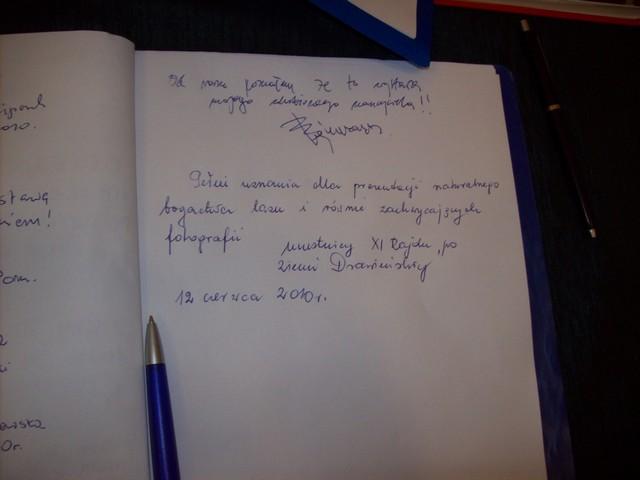 że to wystawa
mojego !!
Pełni uznania dla prezentacji naturalnego
bogactwa lasu i równie zachwycających
fotografii uczestnicy XI Rajdu „po
Ziemi Drawieńskiej
12 czerwca 2010r.
stawą
iem!
Pom.
owska
0r.